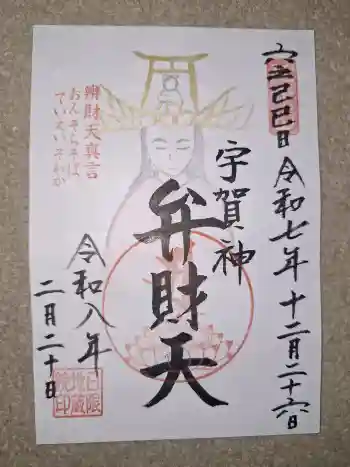 六十己巳日 令和七年十二月二十六日
宇賀神
弁財天
辨財天真言
おんそらそば
ていえいそわか
令和八年
二月二十日
己巳限
地蔵
院印